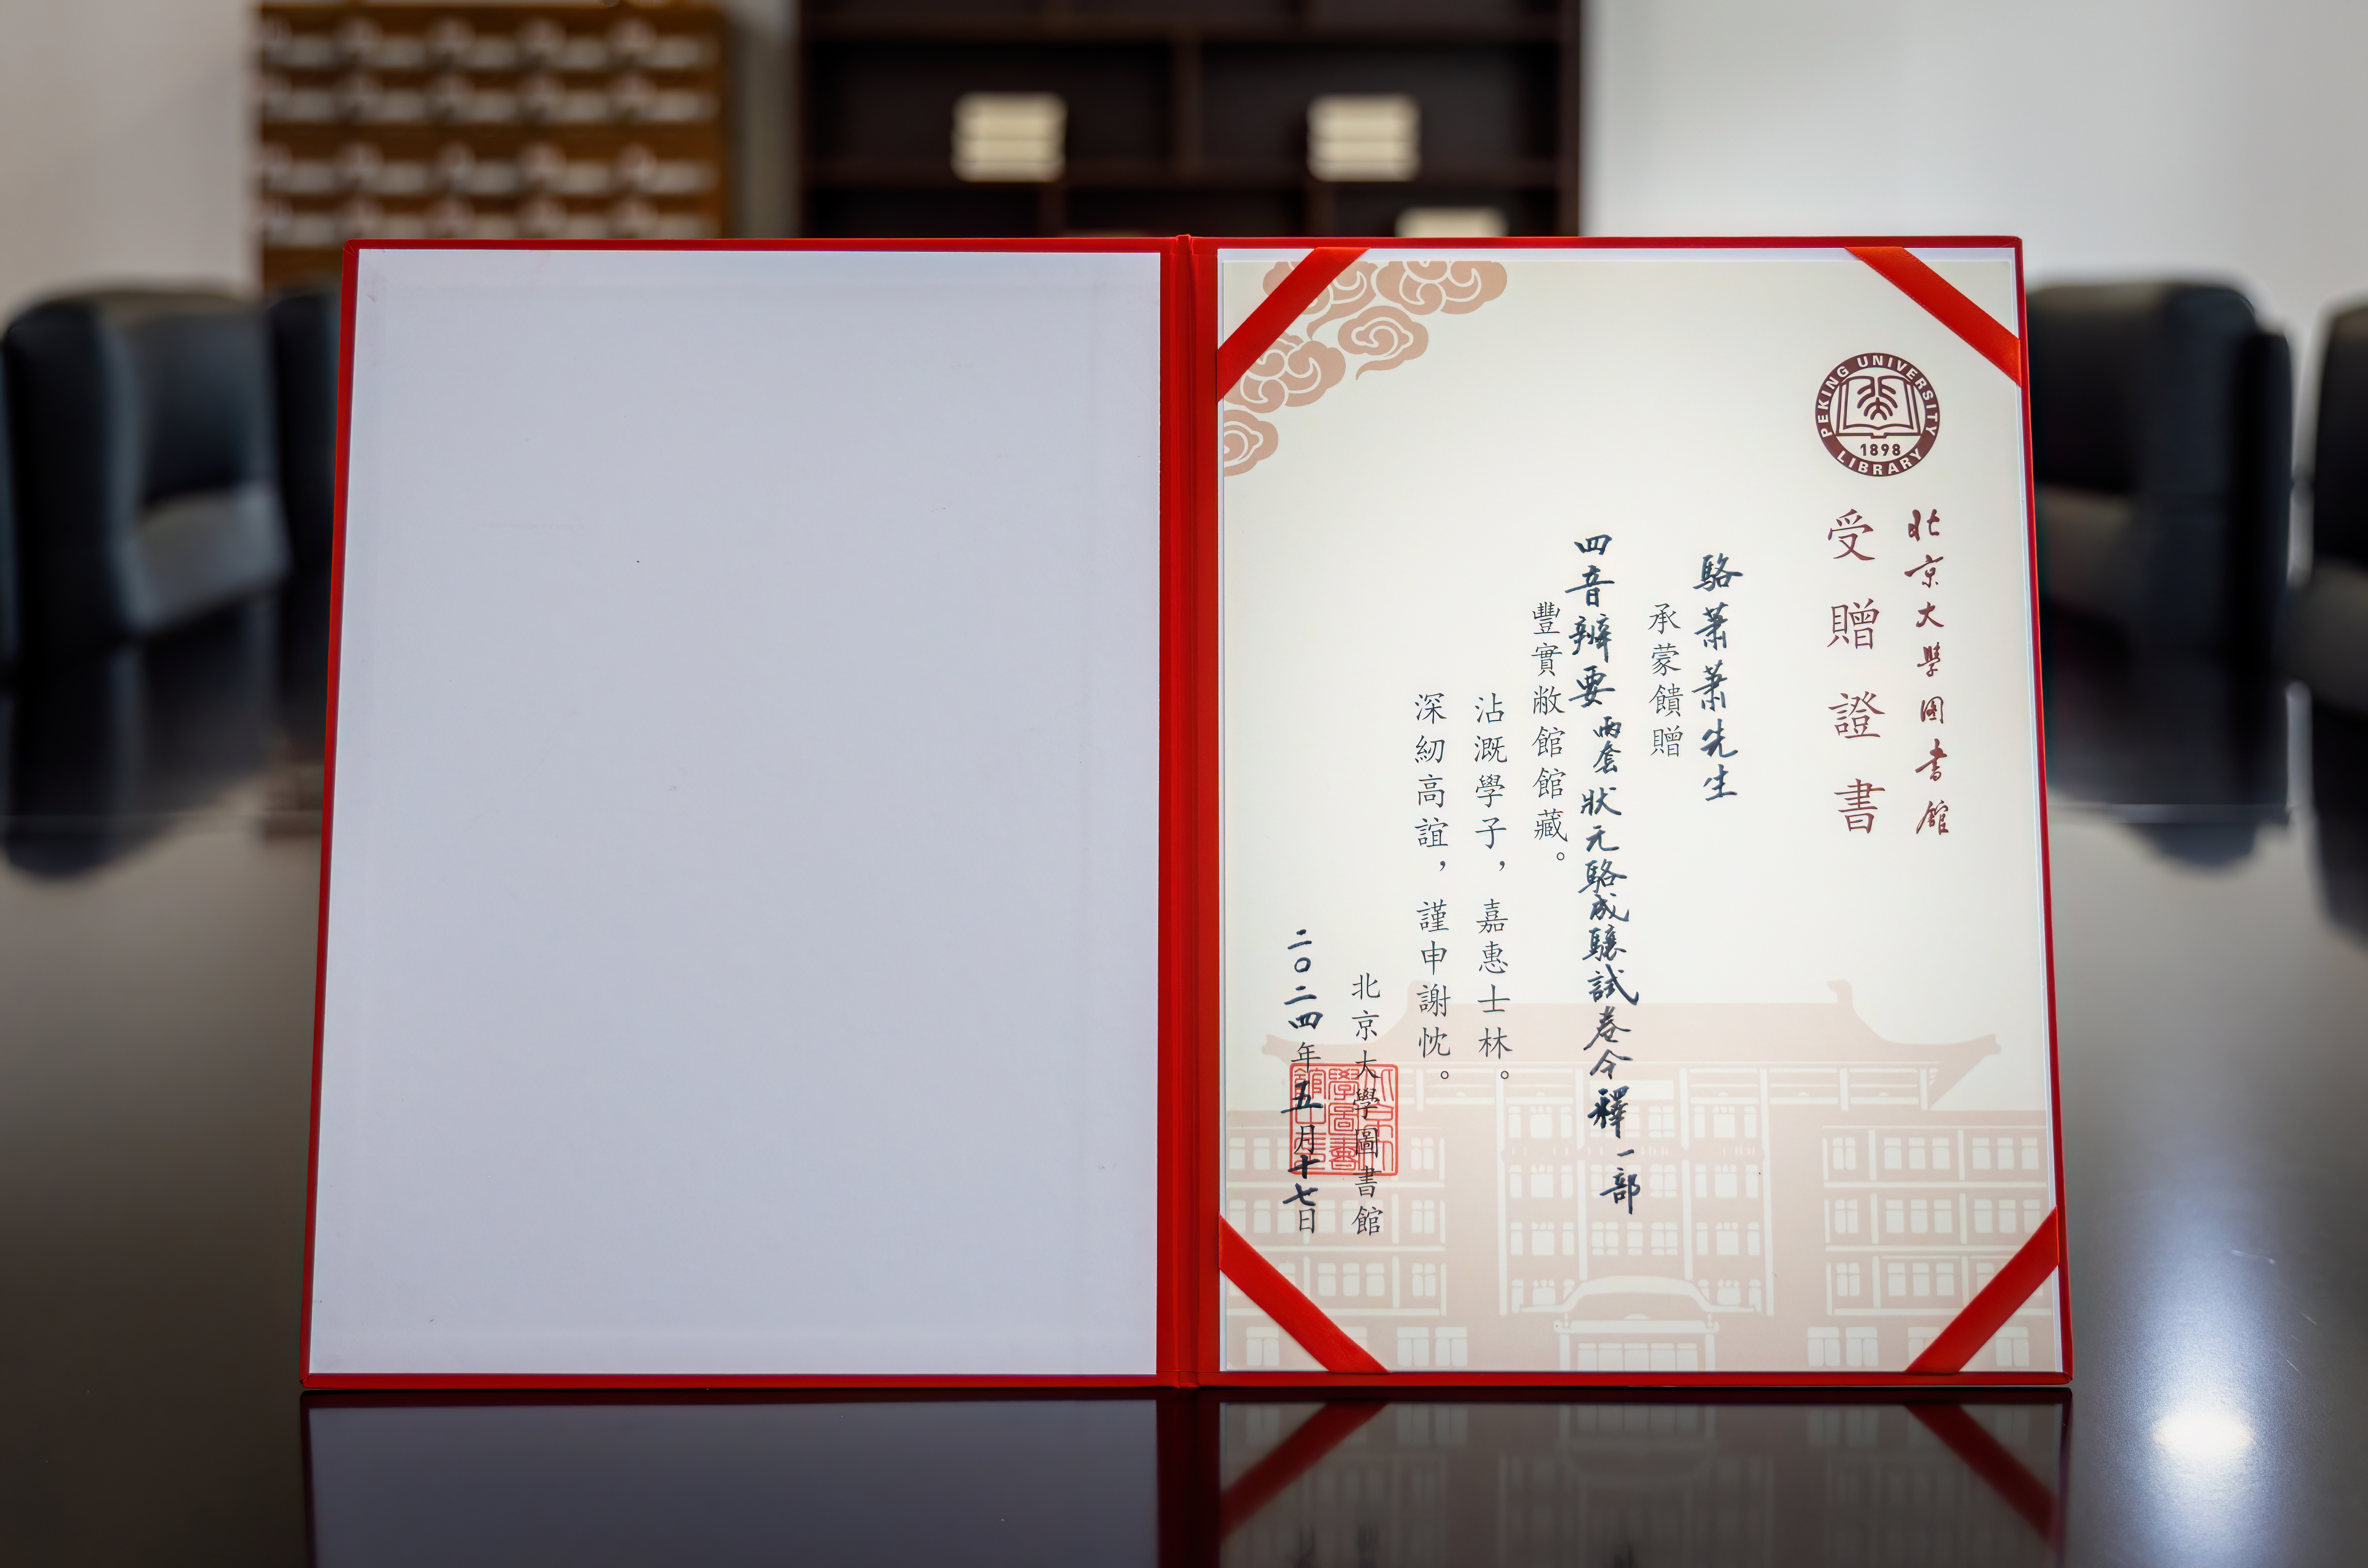 PEKING UNIVERSITY LIBRARY
1898
北京大學圖書館
受贈證書
駱蕭蕭先生
承蒙饋贈
四音辨要兩套狀元駱成驤試卷今釋一部
豐實敝館館藏。
沾溉學子，嘉惠士林。
深紉高誼，謹申謝忱。
北京大學圖書館
二〇二四年五月十七日